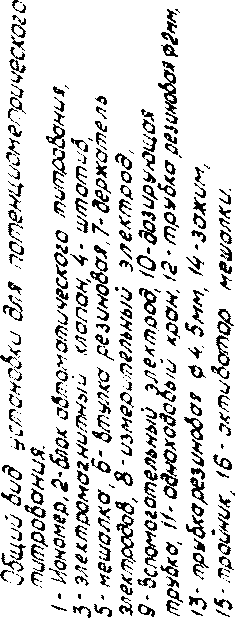 Общий вид установки для потенциометрического
титрования.
1- Иономер, 2- блок автоматического титрования,
3 - электромагнитный клапан, 4 - штатив,
5 - мешалка, 6 - втулка резиновая, 7- держатель
электродов, 8 - измерительный электрод,
9 - вспомогательный электрод, 10 - дозирующая
трубка, 11 - одноходовый кран, 12 - трубка резиновая ф2мм,
13 - трубка резиновая ф 4,5мм, 14 - зажим,
15 - тройник, 16 - активатор мешалки.